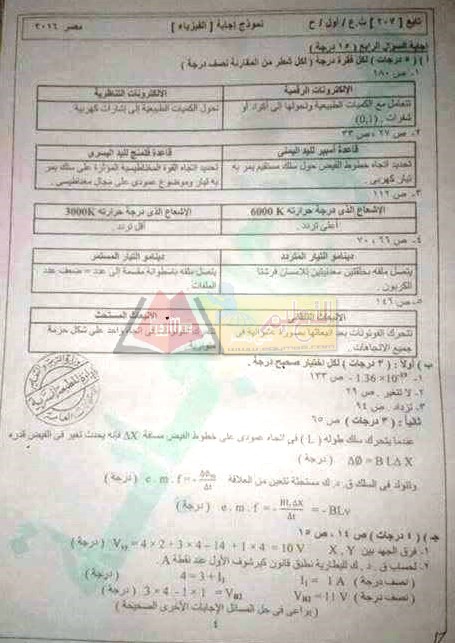 تابع [ ٢٠٣ ] ث.ع / أول / ح
نموذج إجابة [ الفيزياء ]
مصر ٢٠١٦
إجابة السؤال الرابع ( ١٥ درجة )
أ ) ( ٥ درجات ) لكل فقرة درجة ( لكل شطر من المقارنة نصف درجة )
١- ص ١٨٠
الإلكترونات الرقمية
الإلكترونات التناظرية
تتعامل مع الكميات الطبيعية وتحولها إلى أكواد أو شفرات . (0,1)
تحول الكميات الطبيعية إلى إشارات كهربية
٢- ص ٢٧ ، ٣٣
قاعدة أمبير لليد اليمنى
قاعدة فلمنج لليد اليسرى
تحديد اتجاه خطوط الفيض حول سلك مستقيم يمر به تيار كهربي .
تحديد اتجاه القوة المغناطيسية المؤثرة على سلك يمر به تيار وموضوع عمودي على مجال مغناطيسي .
٣- ص ١١٢
الإشعاع الذى درجة حرارته 6000 K
الإشعاع الذى درجة حرارته 3000K
أعلى تردد .
أقل تردد .
٤- ص ٦٦ ، ٧٠
دينامو التيار المتردد
دينامو التيار المستمر
يتصل ملفه بحلقتين معدنيتين تلامسان فرشتا الكربون .
يتصل ملفه باسطوانة مقسمة إلى عدد = ضعف عدد الملفات
٥- ص ١٤٦
الانبعاث التلقائي
الانبعاث المستحث
تتحرك الفوتونات بعد انبعاثها بصورة عشوائية في جميع الاتجاهات .
في اتجاه واحد على شكل حزمة
ب ) أولاً : ( ٣ درجات ) لكل اختيار صحيح درجة .
١- 1.36 ×10⁻¹⁹ ص ١٣٣
٢- لا تتغير . ص ٢٩
٣- تزداد . ص ٩٤
ثانياً : ( ٣ درجات ) ص ٦٥
عندما يتحرك سلك طوله ( L ) فى اتجاه عمودى على خطوط الفيض مسافة ΔX فإنه يحدث تغير فى الفيض قدره
ΔØ = B L Δ X ( درجة )
وتتولد فى السلك ق . د . ك مستحثة تتعين من العلاقة e . m . f = - Δøm/Δt ( درجة )
e . m . f = - BLΔX/Δt = - BLv ( درجة )
جـ ) ( ٤ درجات ) ص ١٤ ، ص ١٥
١- فرق الجهد بين X , Y = 4 × 2 + 3 × 4 – 14 + 1 × 4 = 10 V ( درجة )
٢- لحساب ق . د . ك للبطارية نطبق قانون كيرشوف الأول عند نقطة A .
4 = 3 + I₁ ( نصف درجة )
I₁ = 1 A ( نصف درجة )
3 × 4 - 1 × 1 = VB2 ( درجة )
VB2 = 11 V ( نصف درجة )
( يراعى فى حل المسائل الإجابات الأخرى الصحيحة )
٤